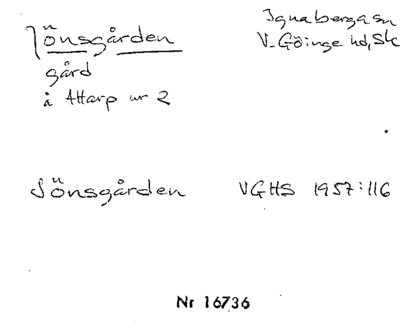 Jönsgården
Ignaberga sn
V. Göinge hd, Sk
gård
å Attarp nr 2
Jönsgården VGHS 1957:116
Nr 16736